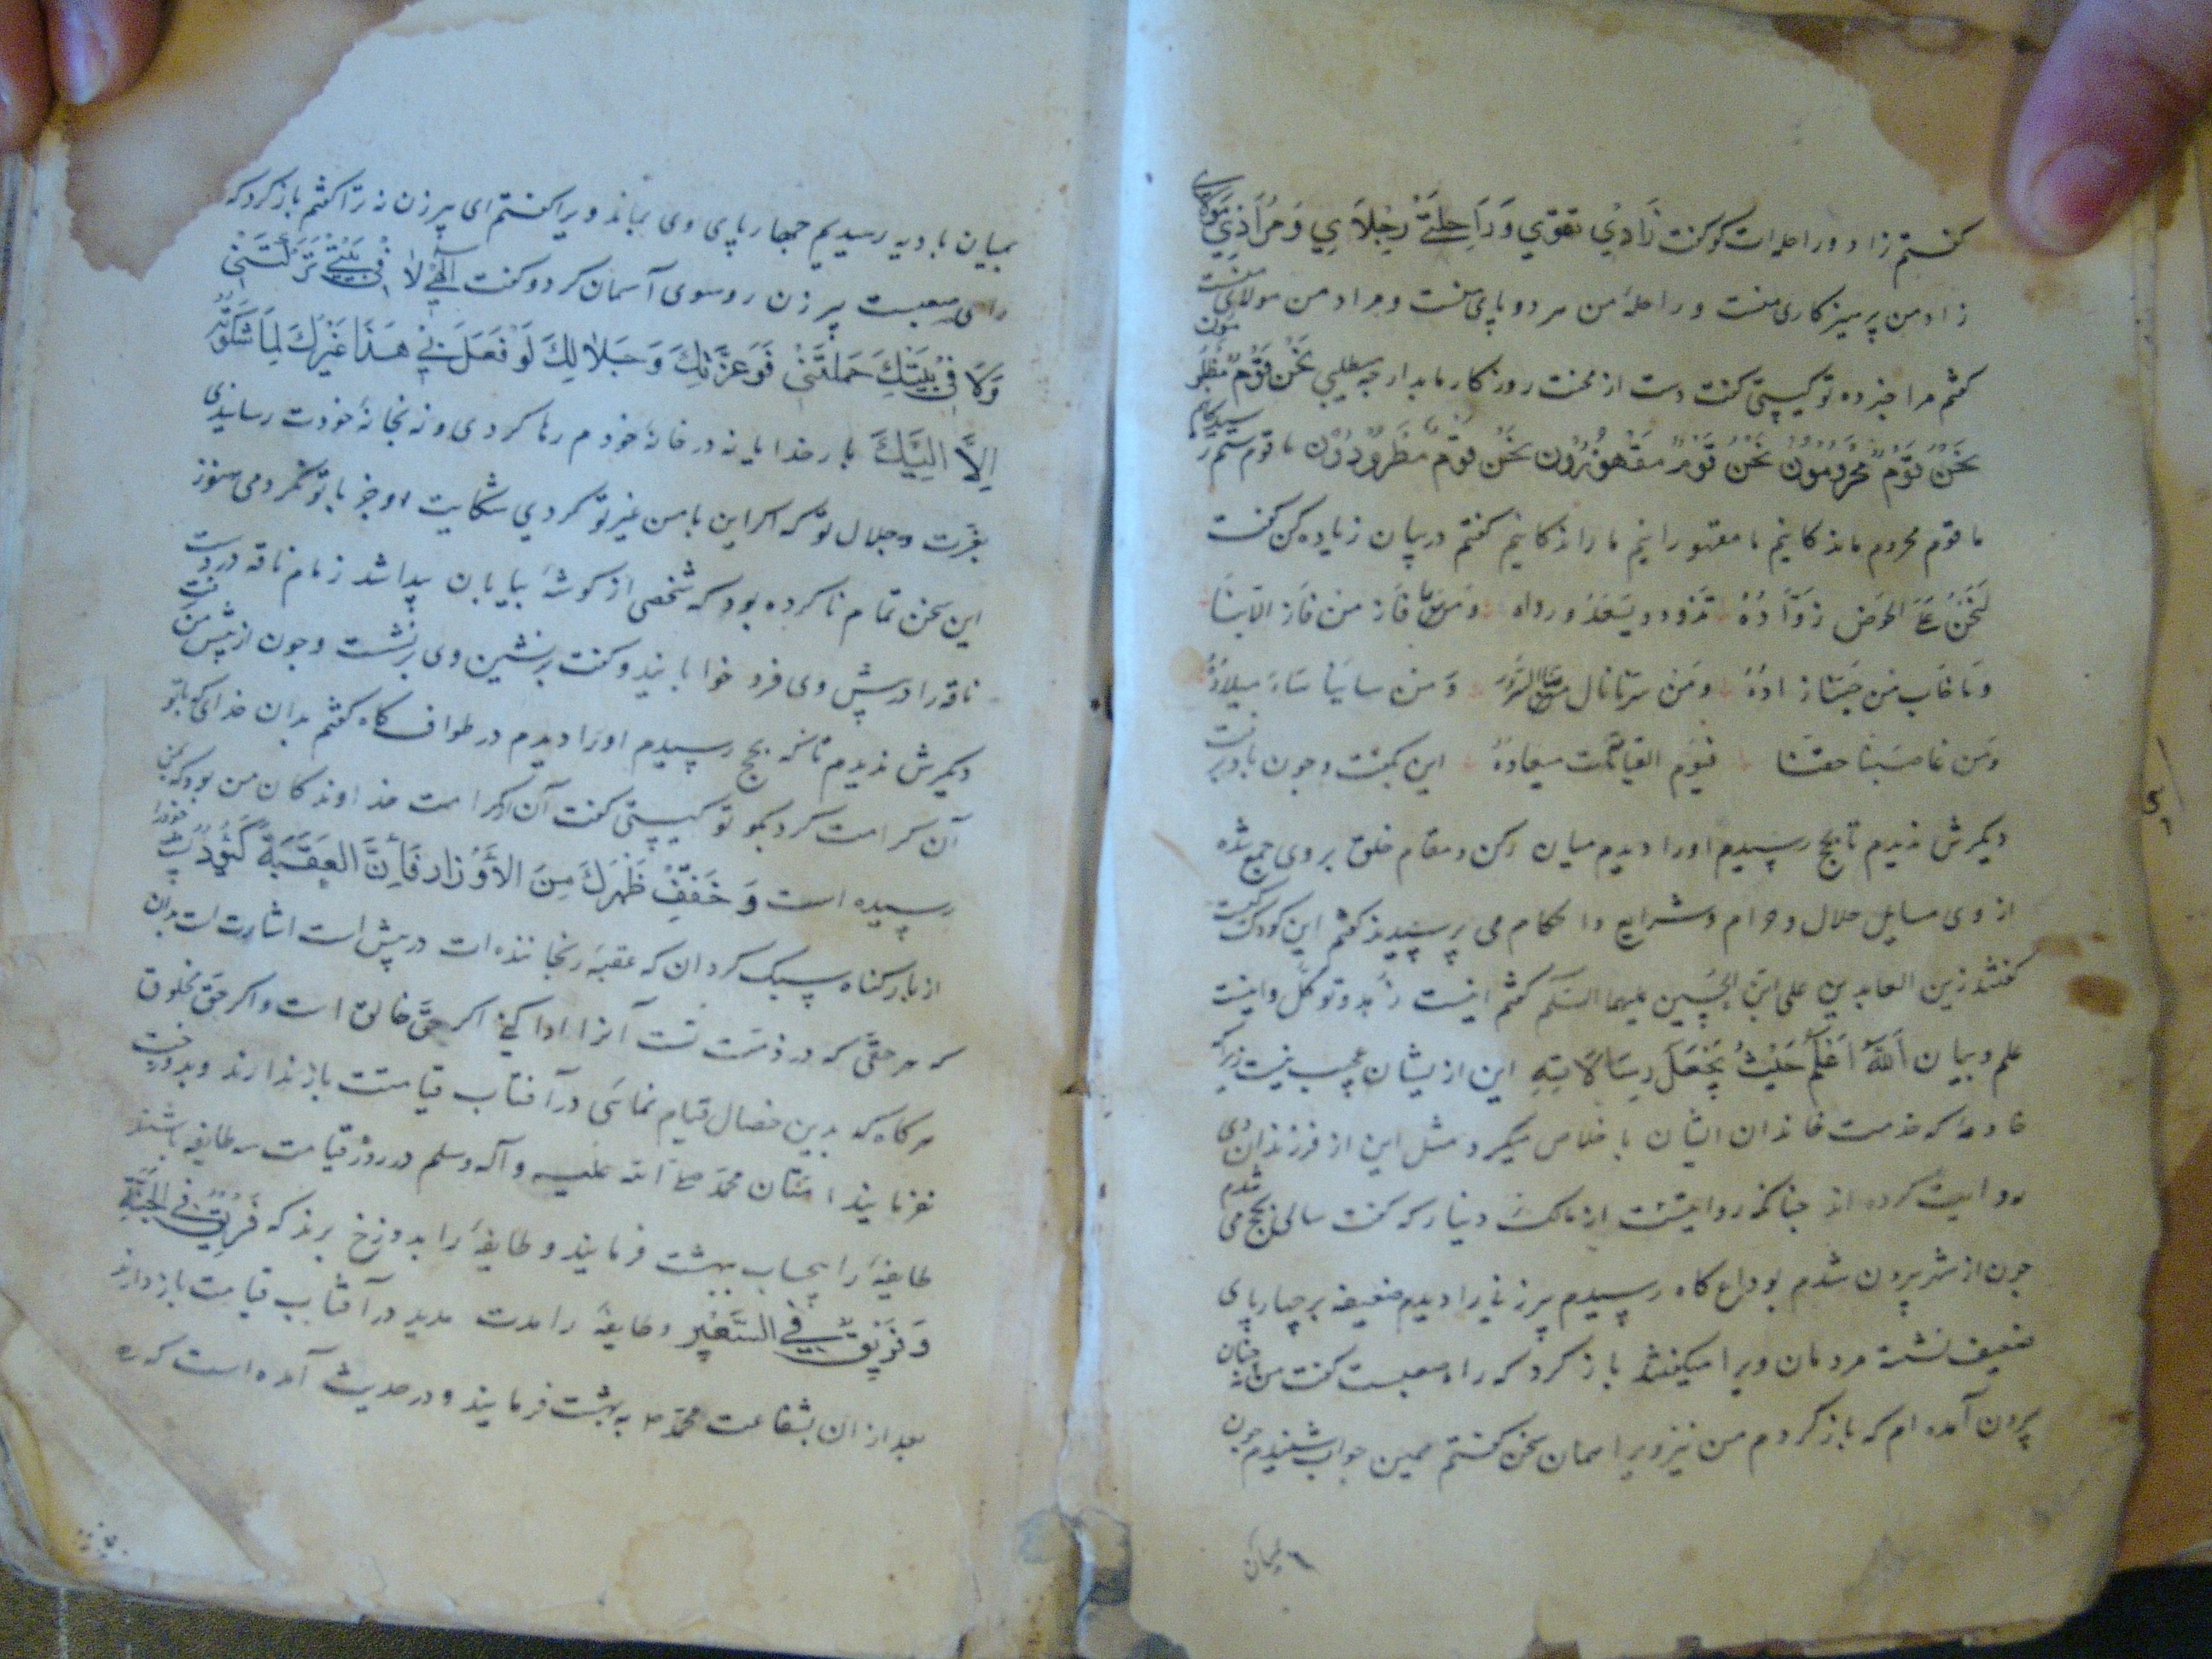 کفتم زاد و راحله ات کو کفت زَادِيْ تقوَي وَرَاحِلَتِي رِجْلاَيِ وَمُرَادِي مَوْلَايَ
زاد من پرهیزکاری منست و راحلهٔ من هر دو پای منست و مراد من مولای منست
کفتم مرا خبر ده تو کیستی کفت دست از محنت روزکار ما بدار چه میطلبی نَحْنُ قَوْمٌ مَظْلُومُونَ
نَحْنُ قَوْمٌ مَحْرُومُونَ نَحْنُ قَوْمٌ مَقْهُورُونَ نَحْنُ قَوْمٌ مَطْرُودُونَ ما قوم ستم رسیدکانیم
ما قوم محروم ماندکانیم ما مقهورانیم ما راندکانیم کفتم در بیان زیاده کن کفت
لَنَحْنُ عَلَی الحَوضِ رُوَّادُهُ نذود و یسعد وراده و ما فاز من فاز الا بنا
و ما خاب من حبنا زاده و من سرنا نال منا السرور و من ساءنا ساء میلاده
و من غاصبنا حقنا فیوم القیامت میعاده این بکفت و چون باد برفت
دیکرش ندیدم تا بحج رسیدم اورا دیدم میان رکن و مقام خلق بر وی جمع شده
از وی مسایل حلال و حرام و شرایع و احکام می پرسیدند کفتم این کودک کیست
کفتند زین العابدین علی ابن الحسین علیهما السلم کفتم اینست زهد و توکل و اینست
علم و بیان اَللّهُ اَعْلَمُ حَیْثُ یَجْعَلُ رِسَالَاتِهِ این از یشان عجیب نیست زیرا که
خادمهٔ که خدمت خاندان ایشان باخلاص میکرد مثل این از فرزندان وی
روایت کرده اند چنانکه روایتست از مالک دینار که کفت سالی بحج می شدم
چون از شهر بیرون شدم بوداع کاه رسیدم پیر زنی را دیدم ضعیفه بر چهارپای
ضعیف نشسته مردمان ویرا میکفتند باز کرد که راه صعبست کفت من نه چنان
بیرون آمده ام که باز کردم من نیز ویرا همان سخن کفتم همین جواب شنیدم چون
بمیان
بمیان بادیه رسیدیم چهارپای وی بماند ویرا کفتم ای پیر زن نه ترا کفتم باز کرد که
راهی صعبست پیر زن رو سوی آسمان کرد و کفت الهی لا فِي بَیْتِي تَرَکْتَنِي
وَلَا فِي بَیْتِكَ حَمَلْتَنِي فَوَعِزَّتِكَ وَجَلالِكَ لَوْ فَعَلَ بِي هَذَا غَیْرُكَ لَمَا شَکَوْتُهُ
اِلاَّ اِلَیْكَ بار خدایا نه در خانهٔ خودم رها کردی و نه بخانهٔ خودت رسانیدی
بعزت و جلال تو که اکر این با من غیر تو کردی شکایت او جز با تو نکردمی هنوز
این سخن تمام ناکرده بود که شخصی از کوشهٔ بیابان پیدا شد زمام ناقه در دست
ناقه را در پیش وی فرو خوابانید و کفت بر نشین وی بر نشست و چون از پیش من برفت
دیکرش ندیدم تا آنکه بحج رسیدم اورا دیدم در طواف کاه کفتم بدان خدای که با تو
آن کرامت کرد بکو تو کیستی کفت آن کرامت خداوندکان من بود که بمن
رسیده است وَ خَفِّفْ ظَهْرَكَ مِنَ الأَوْزَارِ فَاِنَّ العَقَبَةَ کَئُودٌ پشت خودرا
از بار کناه سبک کردان که عقبهٔ رنجاننده ات در پیش است اشارت است بدان
که هر حقی که در ذمت تست آنرا ادا کنی اکر حق خالق است و اکر حق مخلوق
هر کاه که بدین خصال قیام نمائی در آفتاب قیامتت باز ندارند و بدوزخت
نفرمایند امتان محمد صلی الله علیه و آله وسلم در روز قیامت سه طایفه باشند
طایفهٔ را بیحساب ببهشت فرمایند و طایفهٔ را بدوزخ برند که فَرِیْقٌ فِي الجَنَّةِ
وَفَرِیْقٌ فِي السَّعِیْرِ و طایفهٔ را مدت مدید در آفتاب قیامت باز دارند
بعد از ان بشفاعت محمد ص به بهشت فرمایند و در حدیث آمده است که